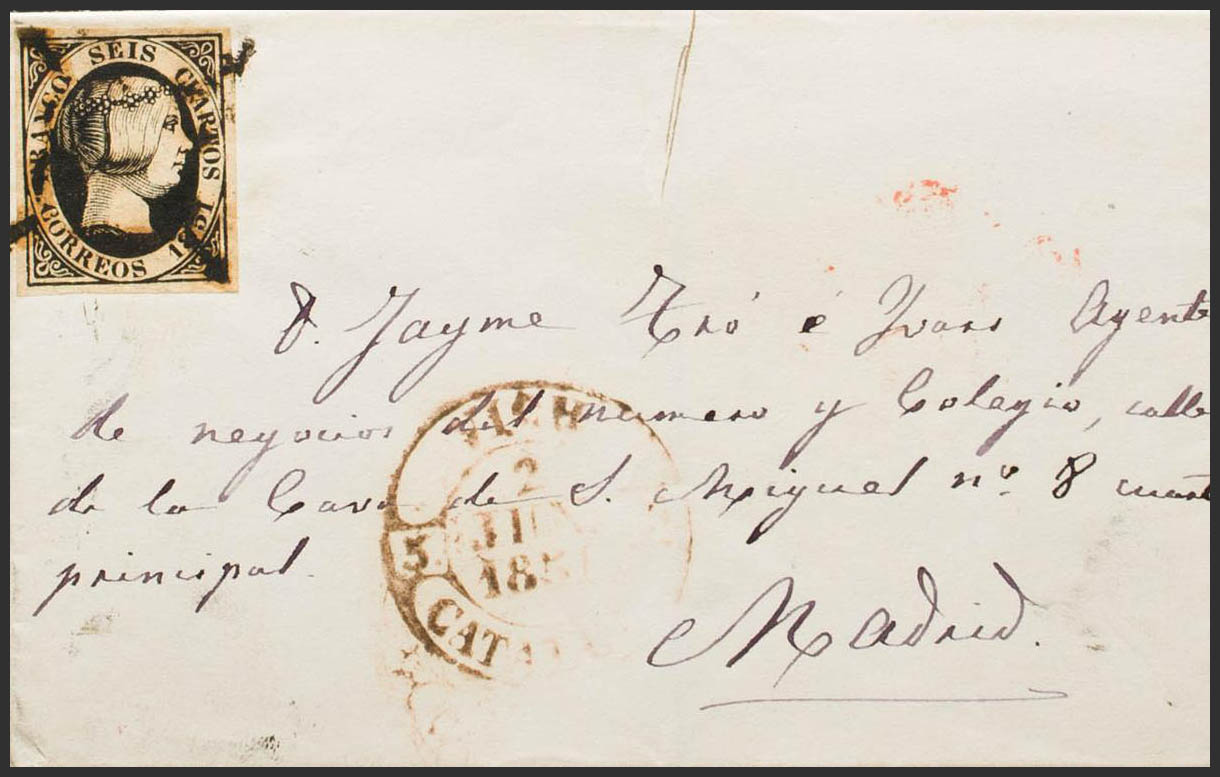 FRANCO SEIS CUARTOS
CORREOS 1851
D. Jayme Tró é Ivars Agente
de negocios del numero y Colegio, calle
de la Cava de S. Miguel nº 8 cuart
principal.
Madrid.
2
JUN
185
5
CATA